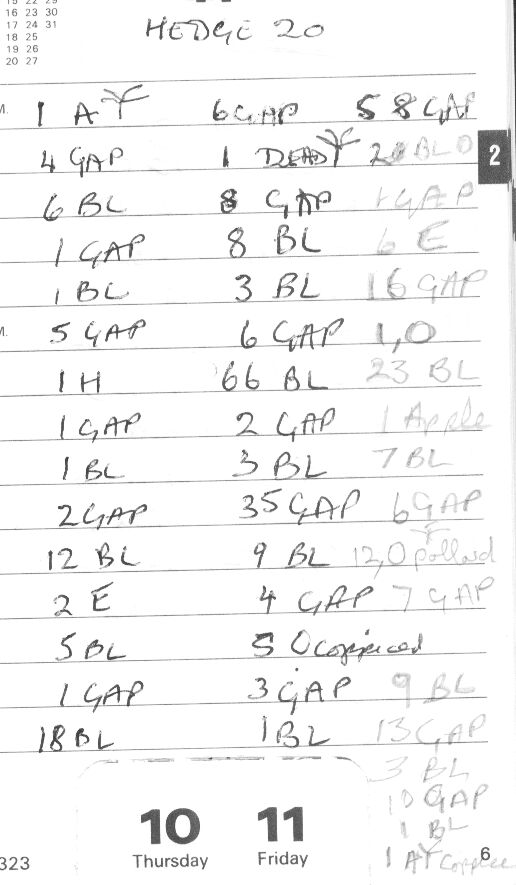 15 22 29
16 23 30
17 24 31
18 25
19 26
20 27
HEDGE 20
1 A 6 GAP 58 GAP
4 GAP 1 DEAD BLO
2
6 BL 8 GAP 1 GAP
1 GAP 8 BL 6 E
1 BL 3 BL 16 GAP
5 GAP 6 GAP 1,0
1 H 66 BL 23 BL
1 GAP 2 GAP 1 Apple
1 BL 3 BL 7 BL
2 GAP 35 GAP 6 GAP
12 BL 9 BL 12,0 pollard
2 E 4 GAP 7 GAP
5 BL 5 O coppiced
1 GAP 3 GAP 9 BL
18 BL 1 BL 13 GAP
3 BL
10 GAP
1 BL
10 11 1 A Coppice
Thursday Friday 6
323